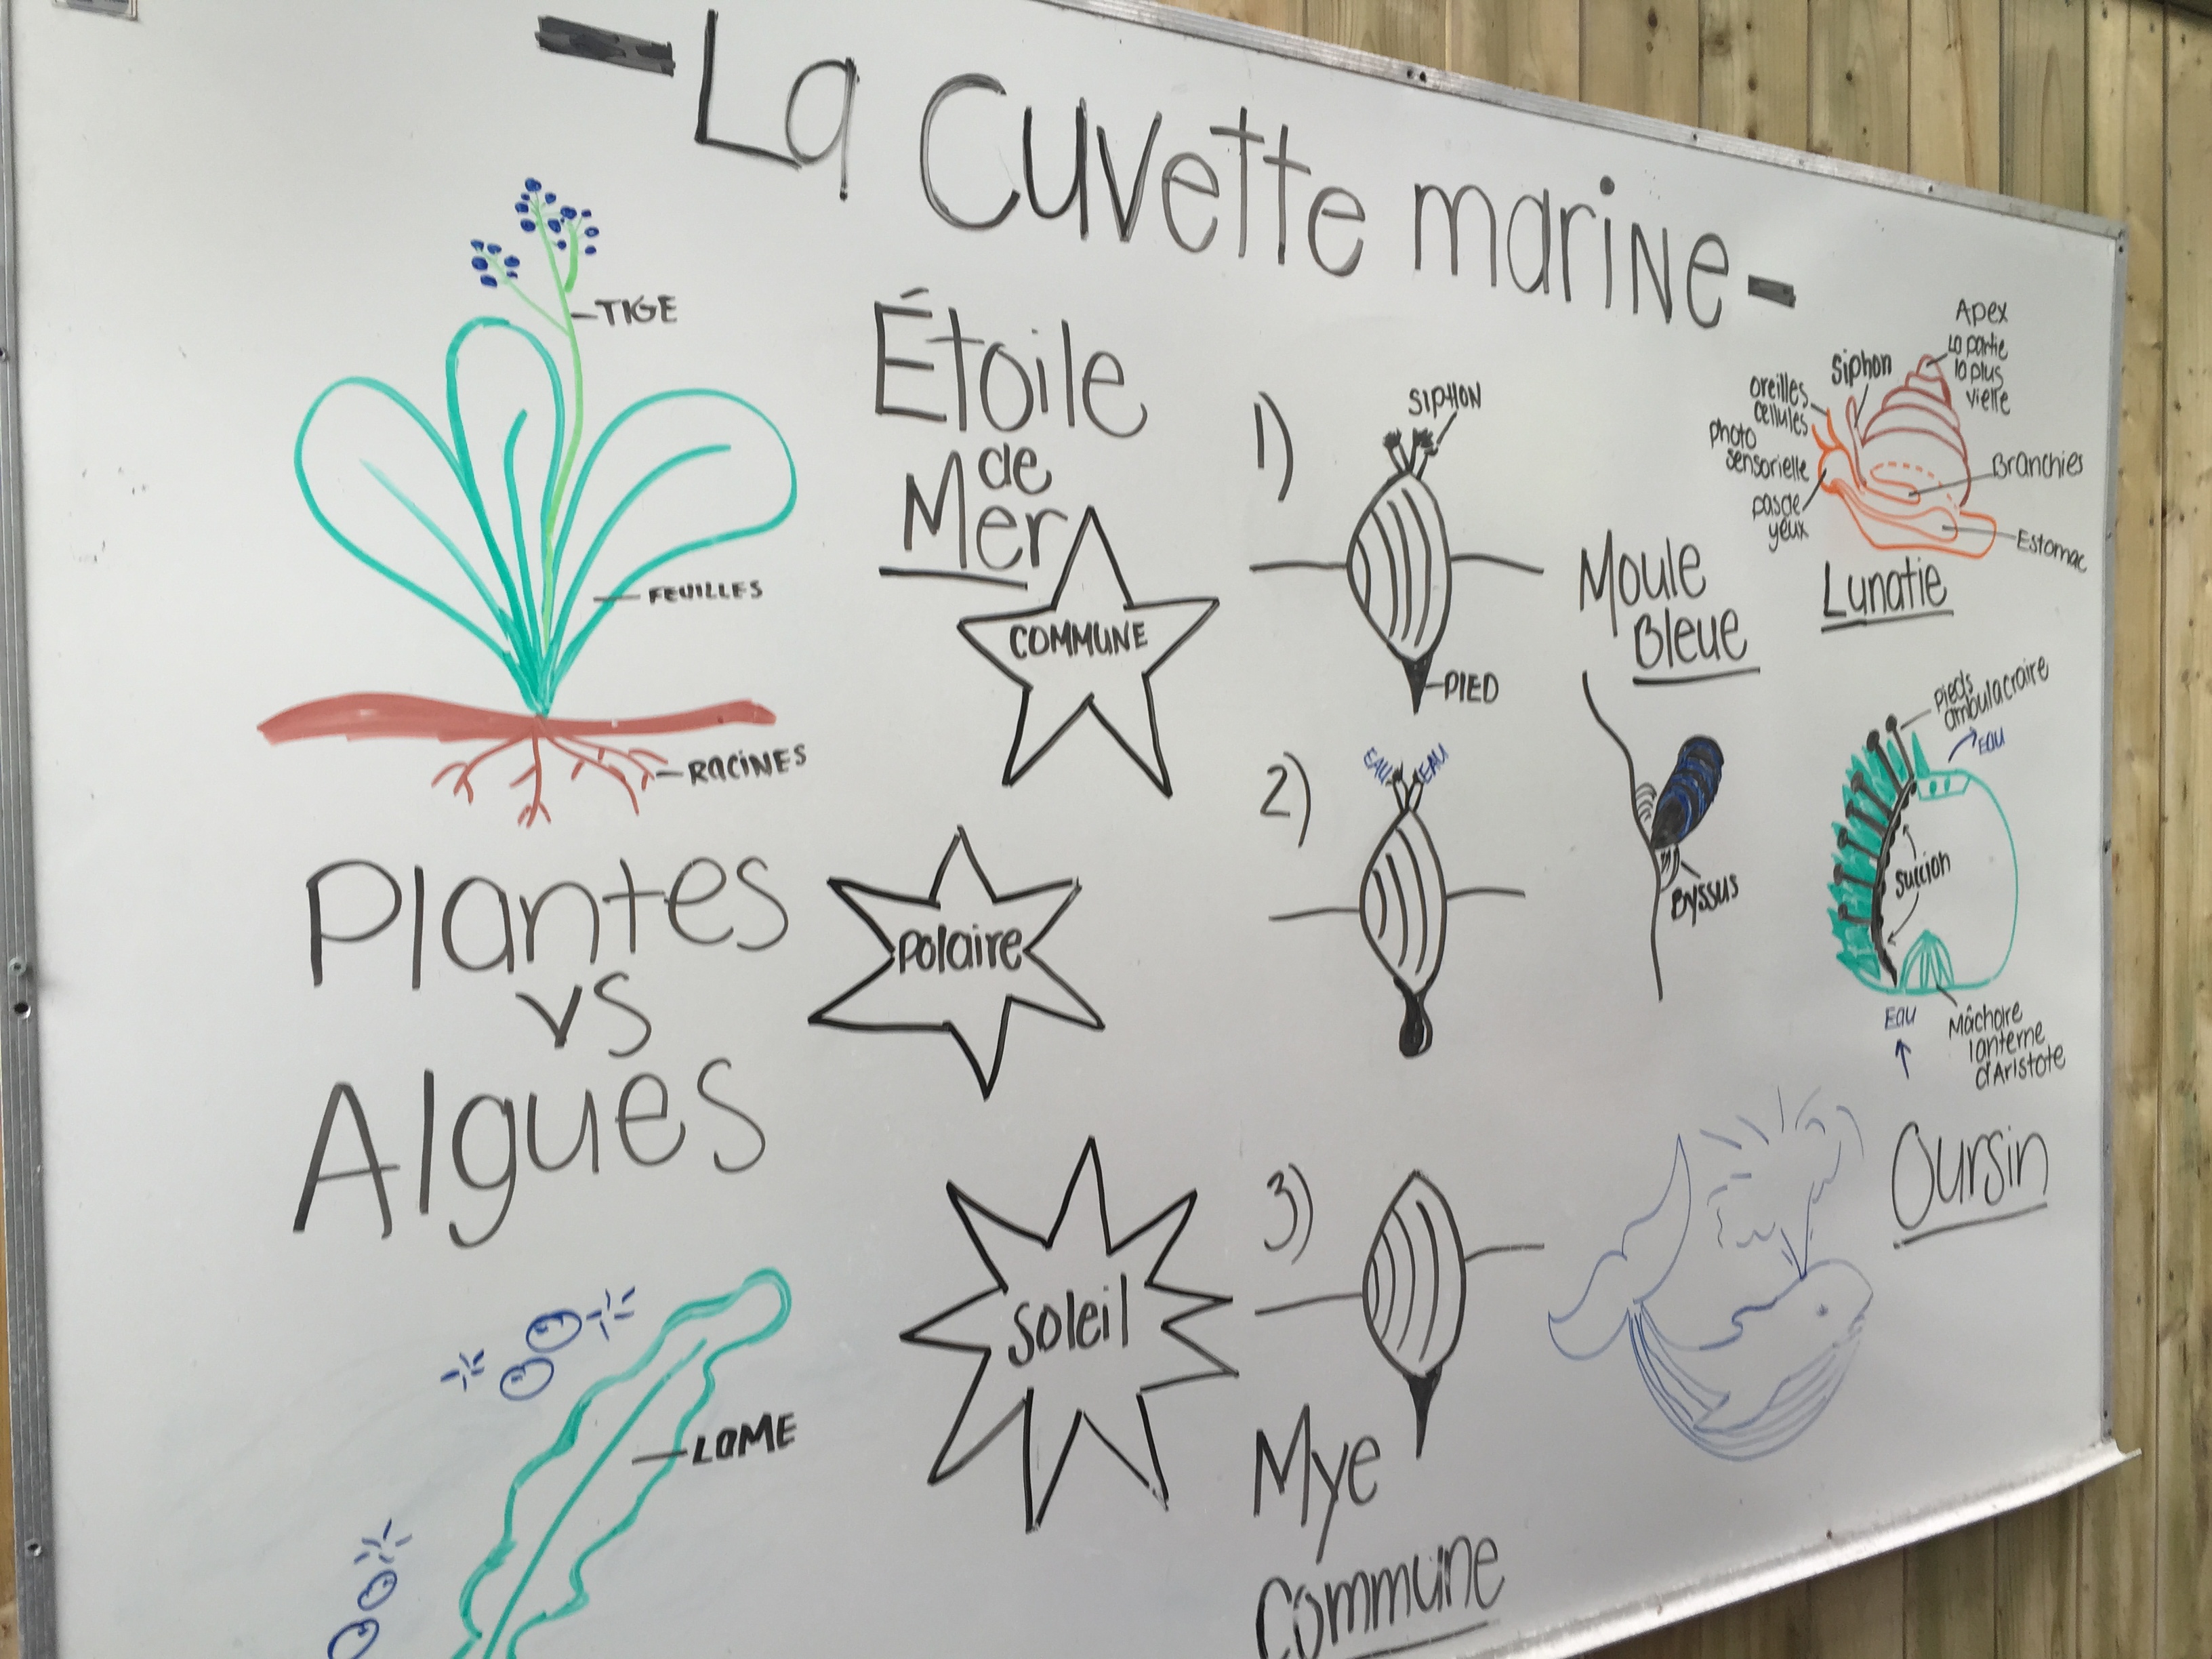 - La Cuvette marine -
TIGE
FEUILLES
RACINES
Plantes
vs
Algues
LAME
Étoile
de
Mer
COMMUNE
Polaire
Soleil
1)
SIPHON
PIED
2)
EAU EAU
3)
Mye
Commune
Moule
Bleue
Byssus
Apex
La partie
la plus
vielle
Siphon
oreilles
cellules
photo
sensorielle
pas de
yeux
Branchies
Estomac
Lunatie
Pieds
ambulacraire
EAU
Succion
EAU
Mâchoire
lanterne
d'Aristote
Oursin